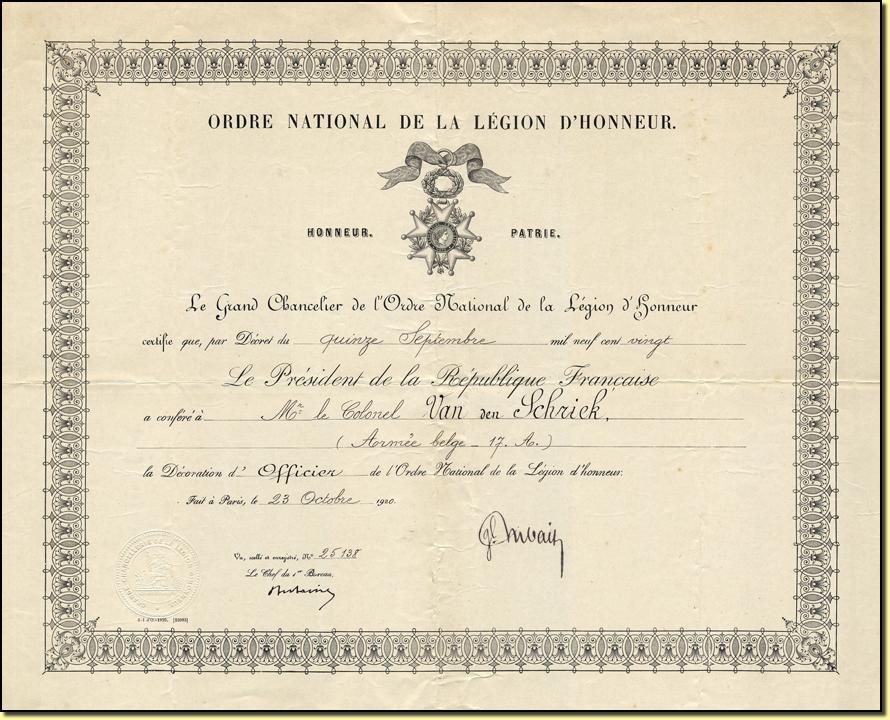 ORDRE NATIONAL DE LA LÉGION D'HONNEUR.
HONNEUR. PATRIE.
Le Grand Chancelier de l'Ordre National de la Légion d'Honneur
certifie que, par Décret du quinze Septembre mil neuf cent vingt
Le Président de la République Française
a conféré à Mr. le Colonel Van den Schriek,
(Armée belge - 17. A.)
la Décoration d' Officier de l'Ordre National de la Légion d'honneur.
Fait à Paris, le 23 Octobre 1920.
Vu, scellé et enregistré, No 25138
Le Chef du 1er Bureau,